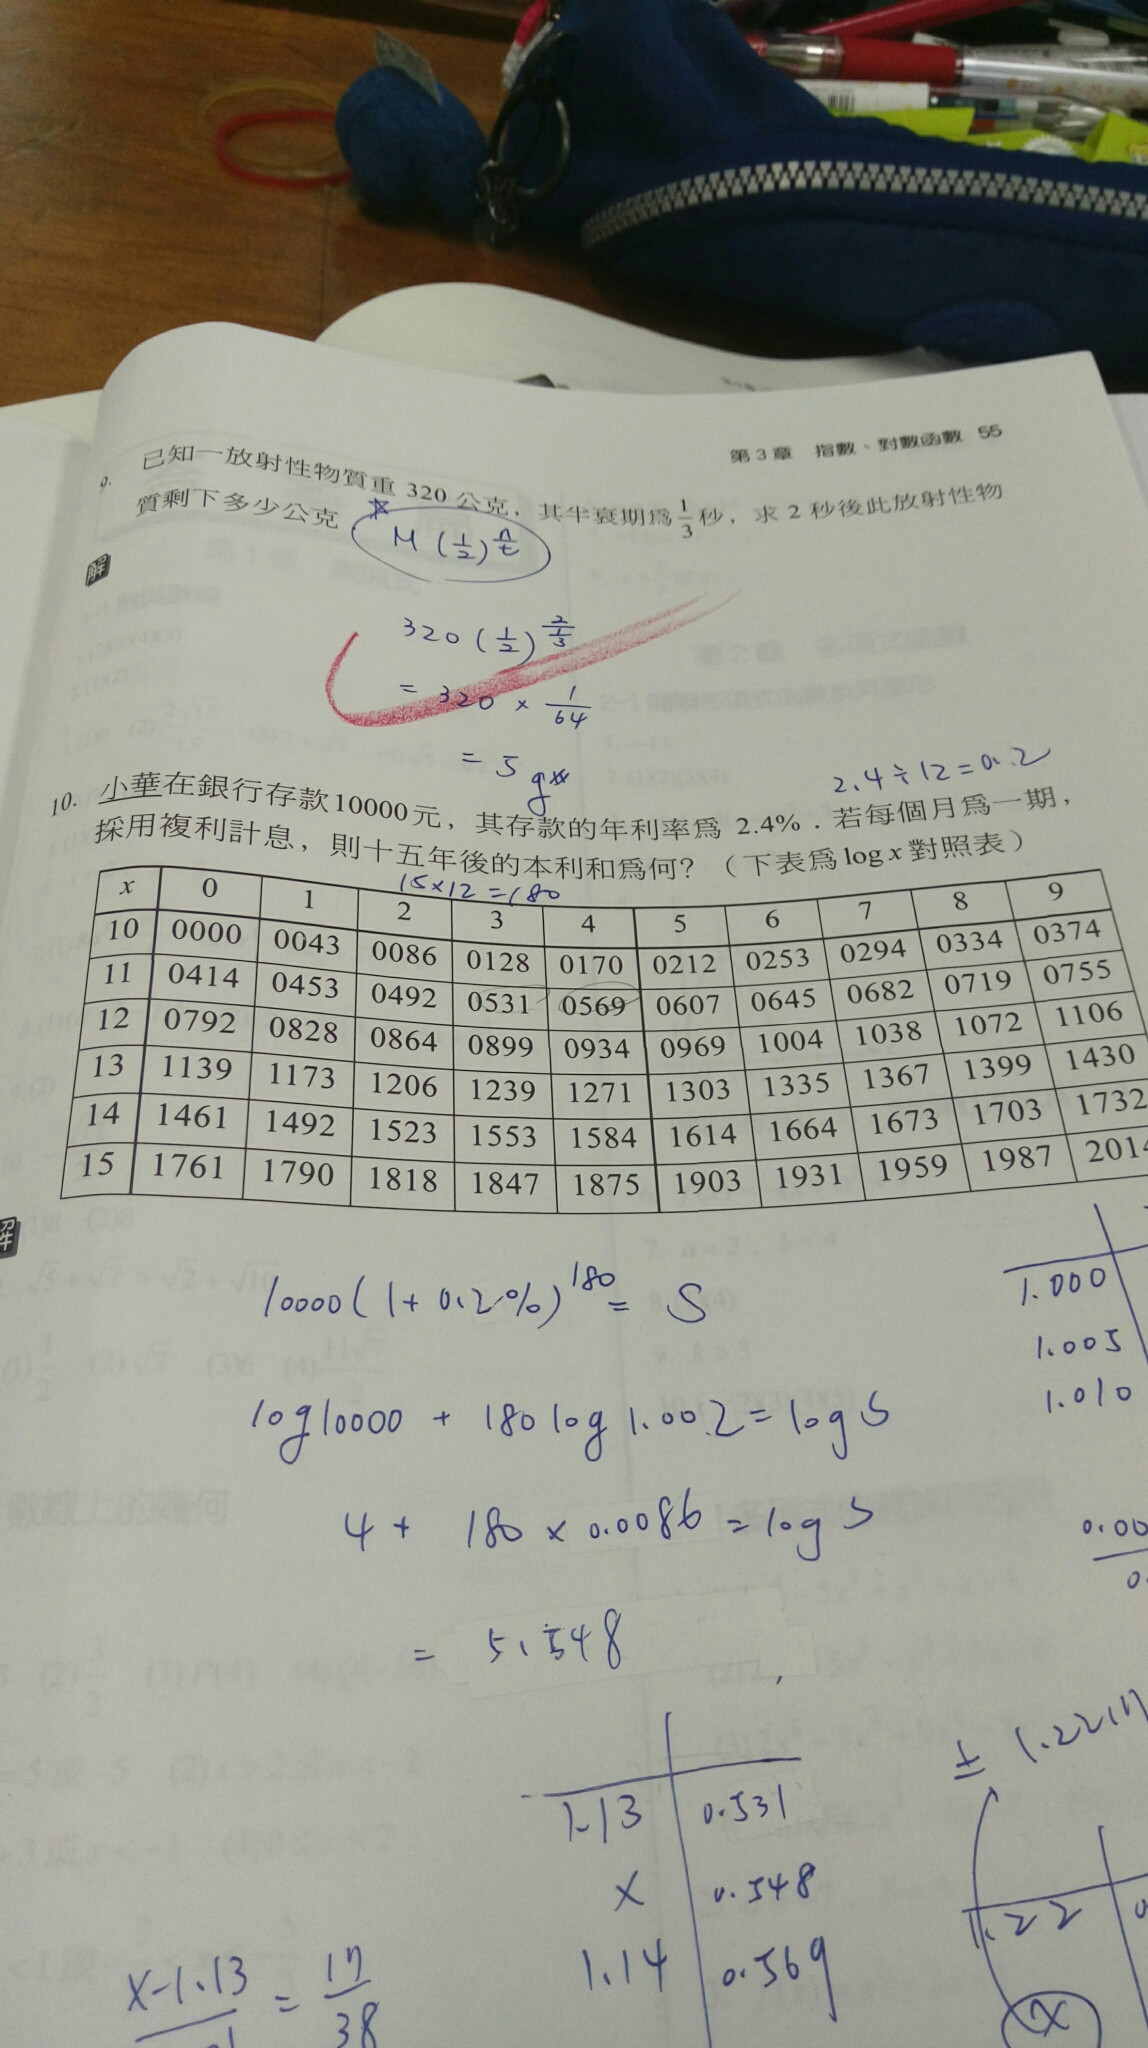 第3章 指數、對數函數 55
9. 已知一放射性物質重 320 公克，其半衰期為 1/3 秒，求 2 秒後此放射性物
質剩下多少公克
M (1/2)^(n/t)
解
320 (1/2)^(2/(1/3))
= 320 × 1/64
= 5 g
2.4÷12=0.2
10. 小華在銀行存款10000元，其存款的年利率為 2.4%．若每個月為一期，
採用複利計息，則十五年後的本利和為何？（下表為 log x 對照表）
15×12=180
x 0 1 2 3 4 5 6 7 8 9
10 0000 0043 0086 0128 0170 0212 0253 0294 0334 0374
11 0414 0453 0492 0531 0569 0607 0645 0682 0719 0755
12 0792 0828 0864 0899 0934 0969 1004 1038 1072 1106
13 1139 1173 1206 1239 1271 1303 1335 1367 1399 1430
14 1461 1492 1523 1553 1584 1614 1664 1673 1703 1732
15 1761 1790 1818 1847 1875 1903 1931 1959 1987 2014
解
10000(1+0.2%)^180 = S
log10000 + 180log1.002=logS
4+ 180×0.0086=logS
= 5.548
1.000
1.005
1.010
1.13 0.531
x 0.548
1.14 0.569
x-1.13 = 17
38
± 1.2217
1.22
x